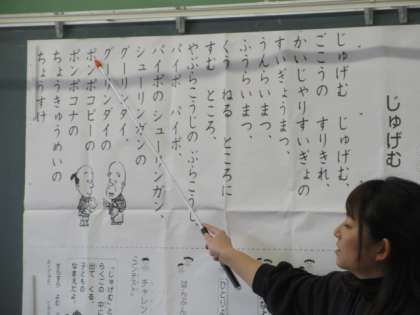 じゅげむ
じゅげむ　じゅげむ、
ごこうの　すりきれ、
かいじゃりすいぎょの
すいぎょうまつ、
うんらいまつ、
ふうらいまつ、
くう　ねる　ところに
すむ　ところ、
やぶらこうじの　ぶらこうじ、
パイポ　パイポ、
パイポの　シューリンガン、
シューリンガンの
グーリンダイ、
グーリンダイの
ポンポコピーの
ポンポコナの
ちょうきゅうめいの
ちょうすけ